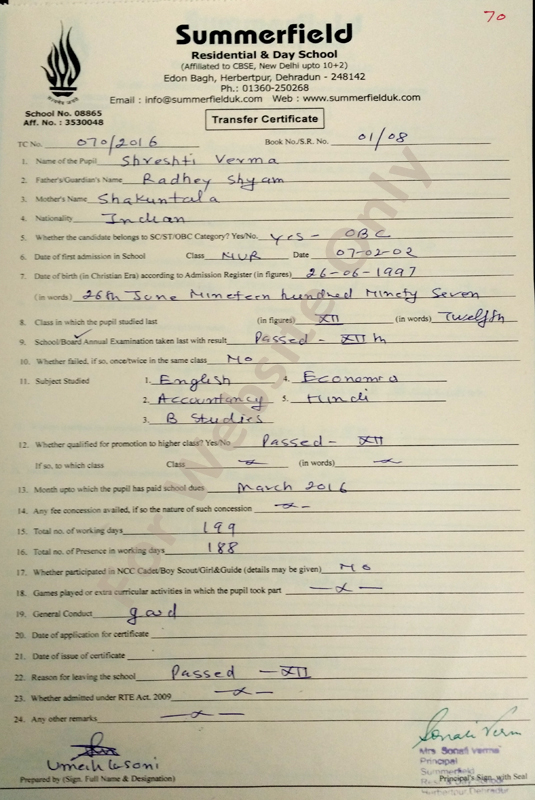 70
Summerfield
Residential & Day School
(Affiliated to CBSE, New Delhi upto 10+2)
Edon Bagh, Herbertpur, Dehradun - 248142
Ph.: 01360-250268
Email : info@summerfielduk.com Web : www.summerfielduk.com
School No. 08865
Aff. No. : 3530048
Transfer Certificate
TC No. 070/2016 Book No./S.R. No. 01/08
1. Name of the Pupil Shreshti Verma
2. Father's/Guardian's Name Radhey Shyam
3. Mother's Name Shakuntala
4. Nationality Indian
5. Whether the candidate belongs to SC/ST/OBC Category? Yes/No. Yes - OBC
6. Date of first admission in School Class NUR Date 07-02-02
7. Date of birth (in Christian Era) according to Admission Register (in figures) 26-06-1997
(in words) 26th June Nineteen hundred Ninety Seven
8. Class in which the pupil studied last (in figures) XII (in words) Twelfth
9. School/Board Annual Examination taken last with result Passed - XII th
10. Whether failed, if so, once/twice in the same class No
11. Subject Studied 1. English 4. Economics
2. Accountancy 5. Hindi
3. B Studies
12. Whether qualified for promotion to higher class? Yes/No Passed - XII
If so, to which class Class x (in words) x
13. Month upto which the pupil has paid school dues March 2016
14. Any fee concession availed, if so the nature of such concession - x -
15. Total no. of working days 199
16. Total no. of Presence in working days 188
17. Whether participated in NCC Cadet/Boy Scout/Girl&Guide (details may be given) No
18. Games played or extra curricular activities in which the pupil took part - x -
19. General Conduct good
20. Date of application for certificate
21. Date of issue of certificate
22. Reason for leaving the school Passed - XII
23. Whether admitted under RTE Act. 2009 - x -
24. Any other remarks - x -
For Website Only
Umesh Soni
Prepared by (Sign. Full Name & Designation)
Sonali Verma
Mrs Sonali Verma
Principal
Summerfield
Res. & Day School
Herbertpur, Dehradun
Principal's Sign. with Seal